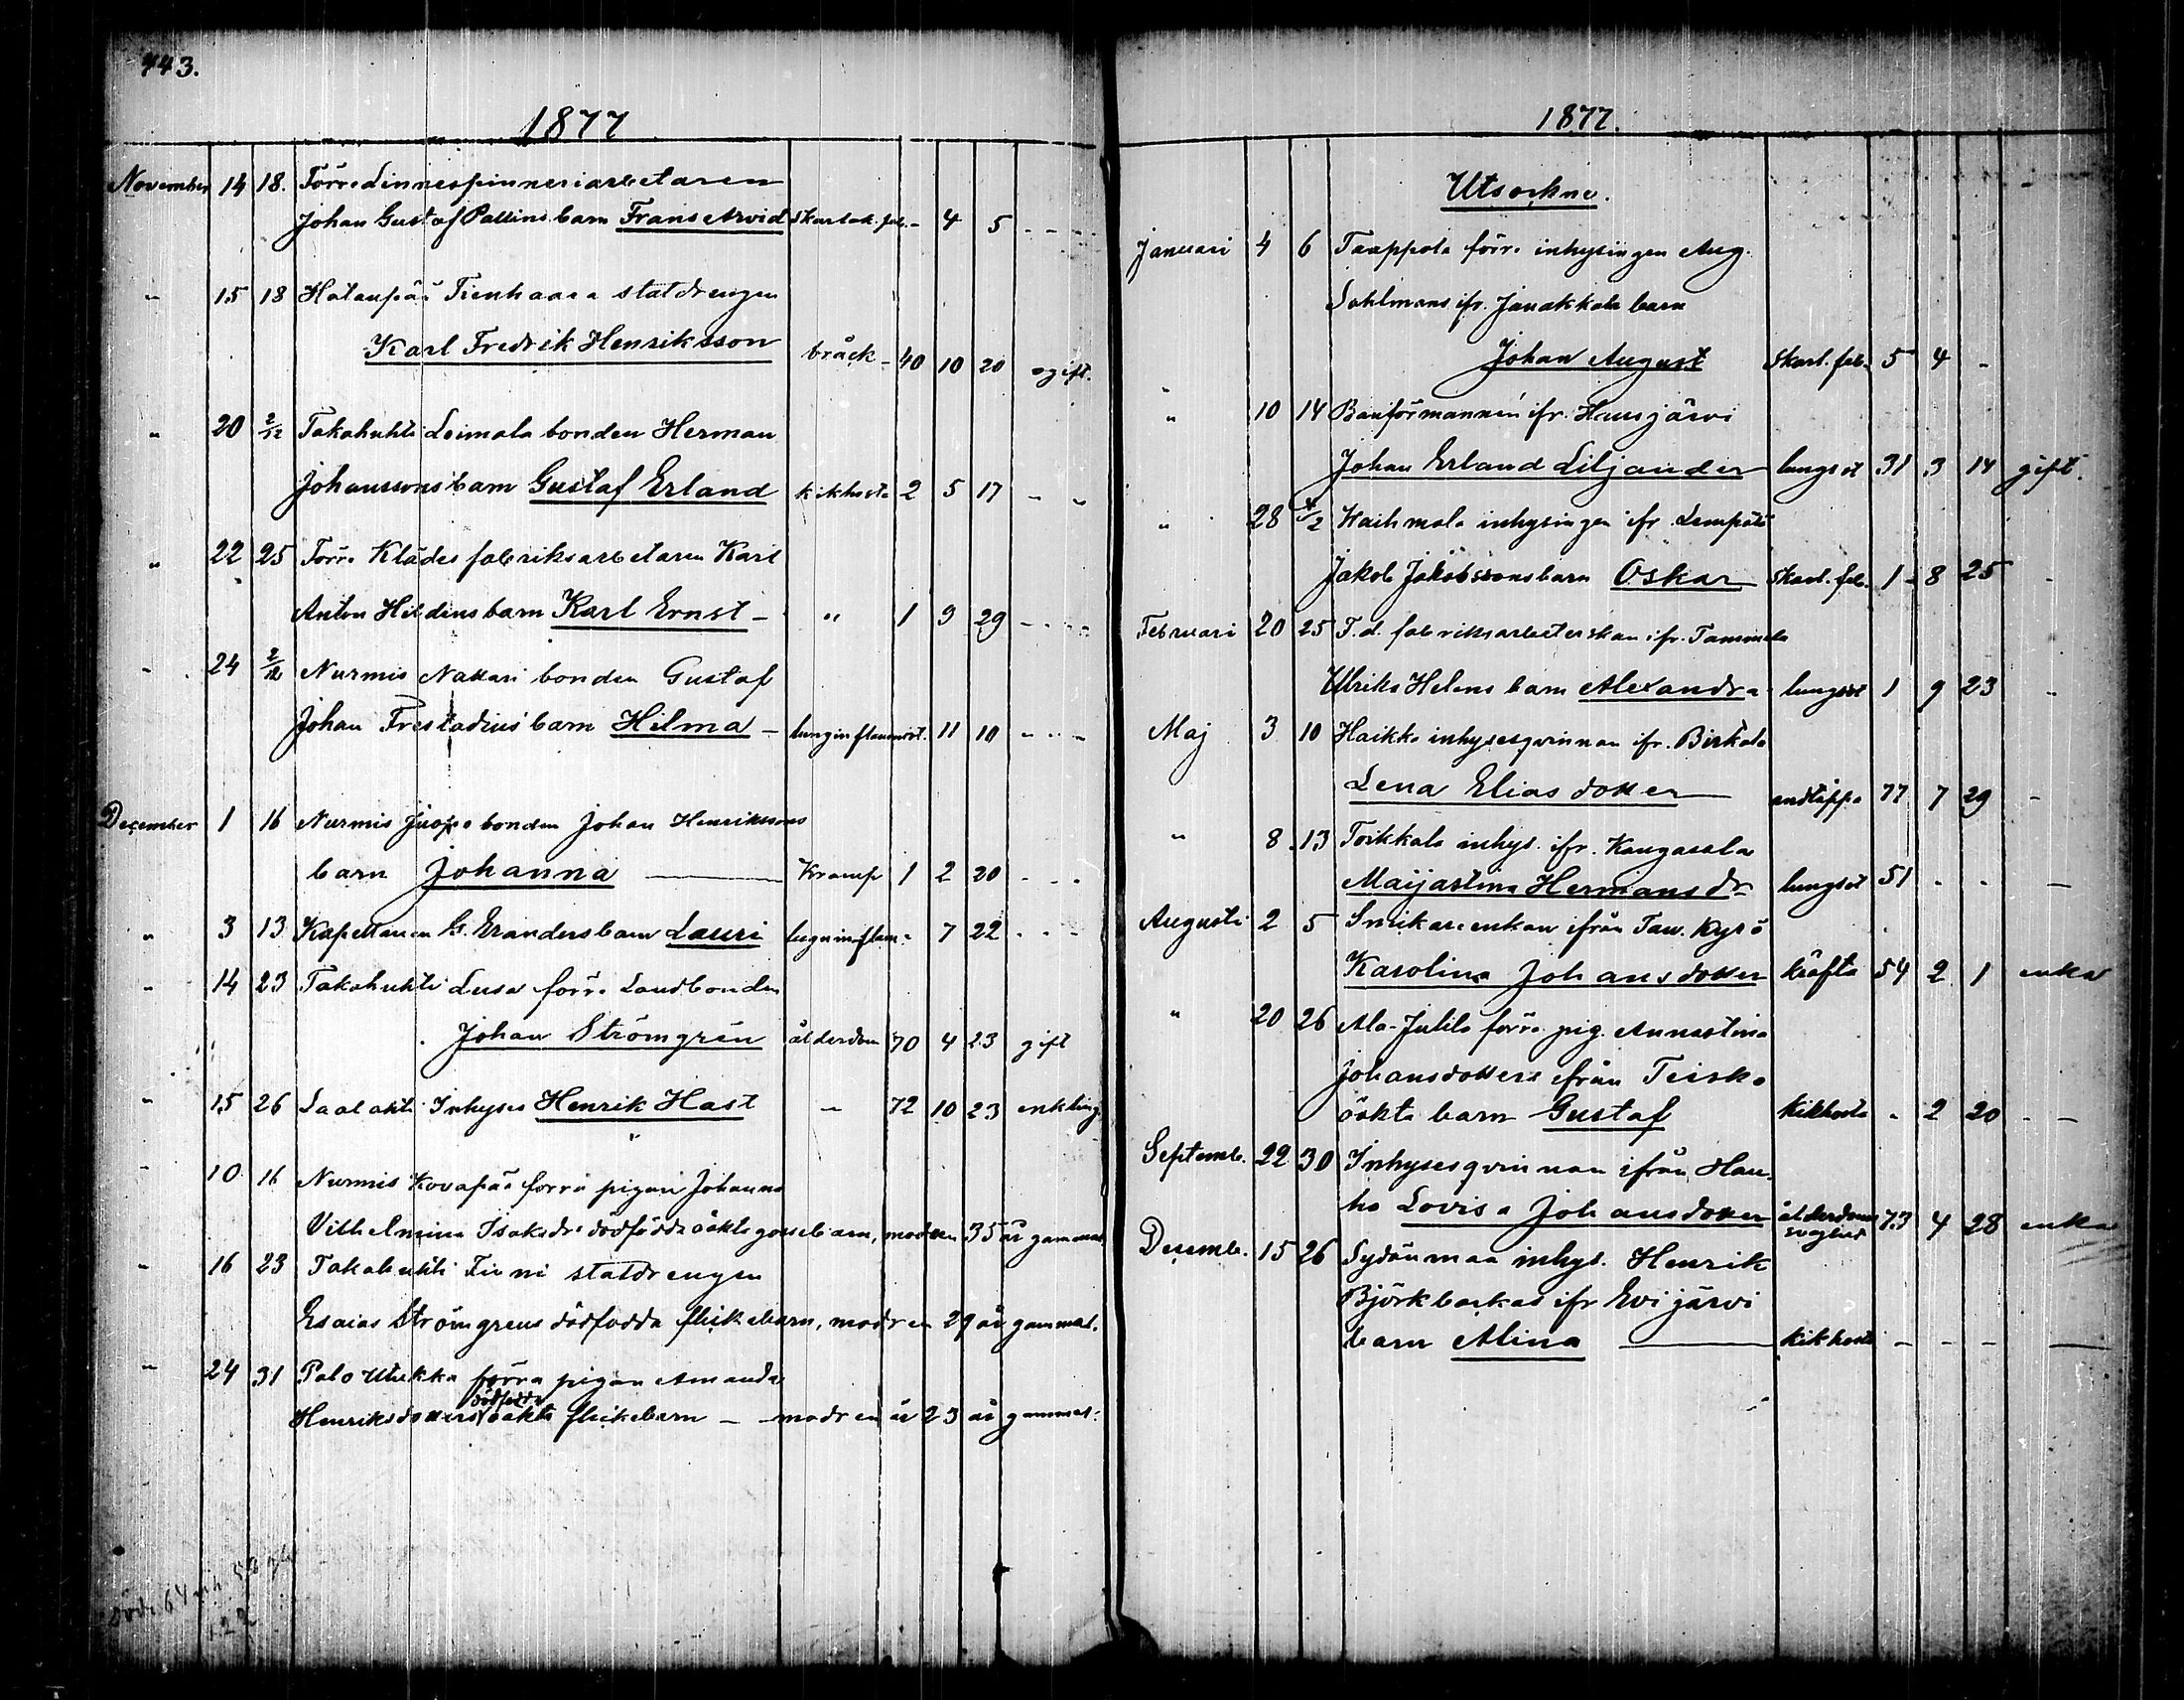 443.
1877
November 14 18. Förre Linnespinneriarbetaren
Johan Gustaf Pallins barn Frans Arvid Skarlak. feb. - 4 5 - -
" 15 18 Hatanpää Tienhaara statdrengen
Karl Fredrik Henriksson bråck - 40 10 20 gift.
" 20 2/12 Takahuhti Leimola bonden Herman
Johanssons barn Gustaf Erland kikhosta 2 5 17 - -
" 22 25 Förre Klädesfabriksarbetaren Karl
Anton Heldens barn Karl Ernst - " 1 9 29 - -
" 24 2/12 Nurmis Nattari bonden Gustaf
Johan Frestadius barn Hilma - lunginflammat. 11 10 - -
December 1 16 Nurmis Juopo bonden Johan Henrikssons
barn Johanna Kramp 1 2 20 - -
" 3 13 Kapellanen G. Eranders barn Lauri lunginflam. - 7 22 - -
" 14 23 Takahuhti Lusa förre Landbonden
Johan Strömgrén ålderdom 70 4 23 gift
" 15 26 Laalahti Inhyses Henrik Hast - 72 10 23 enkling
" 10 16 Nurmis Kovapää förra pigan Johanna
Vilhelmina Isaksdrs dödfödda oäkta gossebarn, modren 35 år gammal
" 16 23 Takahuhti Finni statdrengen
Esaias Strömgrens dödfödda flickebarn, modren 29 år gammal.
" 24 31 Palo Utukka förra pigan Amanda
dödfödda
Henriksdotters oäkta flickebarn - modren är 23 år gammal.
122
1877.
Utsockne.
Januari 4 6 Taappola förre inhysingen Aug.
Sahlmans ifr. Janakkala barn
Johan August Skarl. feb. 5 4 -
" 10 14 Banförmannen ifr. Hausjärvi
Johan Erland Liljander lungsot 31 3 14 gift.
" 28 4/2 Haihmala inhysingen ifr. Lempälä
Jakob Jakobssons barn Oskar Skarl. feb. 1 8 25 -
Februari 20 25 F.d. fabriksarbeterskan ifr. Tammela
Ulrika Helens barn Alexandra lungsot 1 9 23 -
Maj 3 10 Haikka inhysesqvinnan ifr. Birkala
Lena Eliasdotter andtäppa 77 7 29 -
" 8 13 Toikkala inhys. ifr. Kangasala
Maijastina Hermansdr lungsot 51 - - -
Augusti 2 5 Snickareenkan ifrån Taw. Kyrö
Karolina Johansdotter kräfta 54 2 1 enka
" 20 26 Ala-Jutila förra pig. Annastina
Johansdotters ifrån Teisko
oäkta barn Gustaf Kikhosta - 2 20 - -
Septemb. 22 30 Inhysesqvinnan ifrån Hau-
ho Lovisa Johansdotter ålderdoms
svaghet 73 4 28 enka
Decemb. 15 26 Sydänmaa inhys. Henrik
Björkbackas ifr Evijärvi
barn Alina kikhosta - - - -